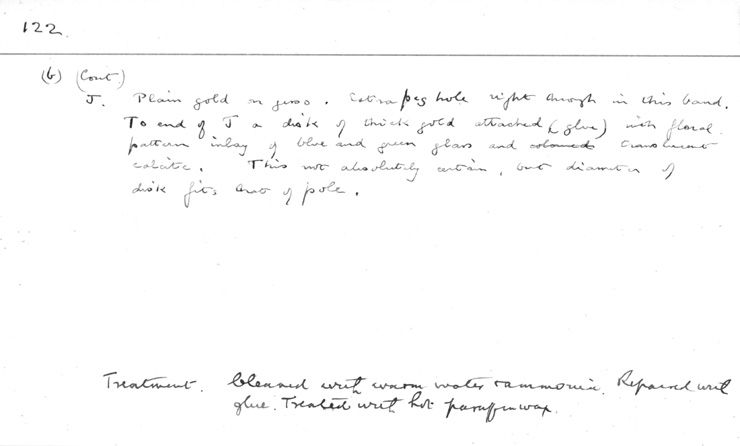 122.
(b) (Cont.)
J. Plain gold on gesso. Extra peg hole right through in this band.
To end of J a disk of thick gold attached (glue) with floral
pattern inlay of blue and green glass and coloured translucent
calcite. This not absolutely certain, but diameter of
disk fits that of pole.
Treatment. Cleaned with warm water & ammonia. Repaired with
glue. Treated with hot paraffin wax.